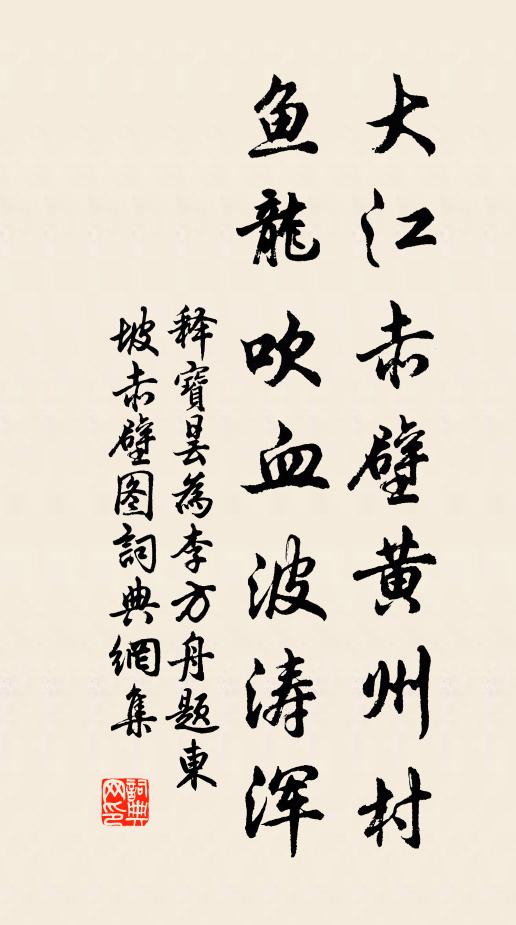 大江赤壁黄州村
鱼龍吹血波涛浑
释寶昙為李方舟題東
坡赤壁图詞典網集
詞典网印